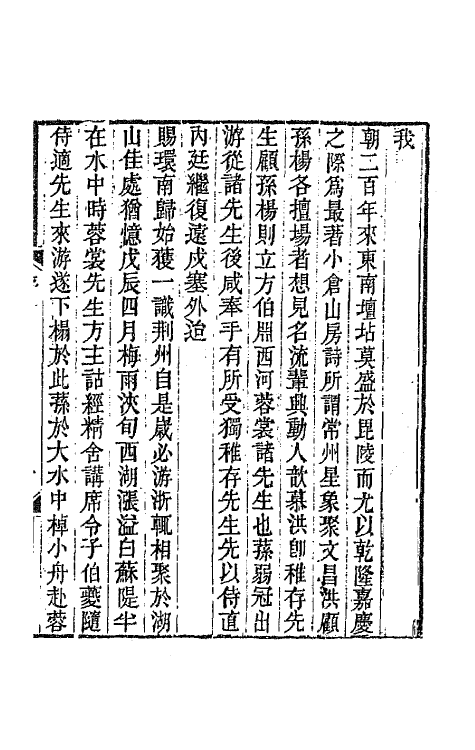 我
朝二百年來東南壇坫莫盛於毘陵而尤以乾隆嘉慶
之際爲最著小倉山房詩所謂常州星象聚文昌洪顧
孫楊各擅場者想見名流輩興動人歆慕洪卽稚存先
生顧孫楊則立方伯淵西河蓉裳諸先生也蓀弱冠出
游從諸先生後咸奉手有所受獨稚存先生先以侍直
內廷繼復遠戍塞外迨
賜環南歸始獲一識荆州自是歲必游浙輒相聚於湖
山佳處猶憶戊辰四月梅雨浹旬西湖漲溢白蘇隄半
在水中時蓉裳先生方主詁經精舍講席令子伯夔隨
侍適先生來游遂下榻於此蓀於大水中棹小舟赴蓉